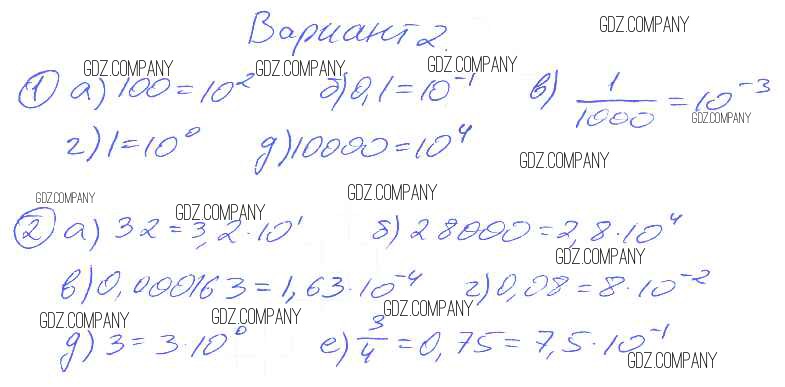 GDZ.COMPANY
Вариант 2.
GDZ.COMPANY GDZ.COMPANY GDZ.COMPANY
① а) 100 = 10² б) 0,1 = 10⁻¹ в) 1/1000 = 10⁻³
GDZ.COMPANY
г) 1 = 10⁰ д) 10000 = 10⁴
GDZ.COMPANY
GDZ.COMPANY GDZ.COMPANY GDZ.COMPANY
② а) 32 = 3,2 · 10¹ б) 28000 = 2,8 · 10⁴
GDZ.COMPANY
в) 0,000163 = 1,63 · 10⁻⁴ г) 0,08 = 8 · 10⁻²
GDZ.COMPANY GDZ.COMPANY GDZ.COMPANY
д) 3 = 3 · 10⁰ е) 3/4 = 0,75 = 7,5 · 10⁻¹
GDZ.COMPANY